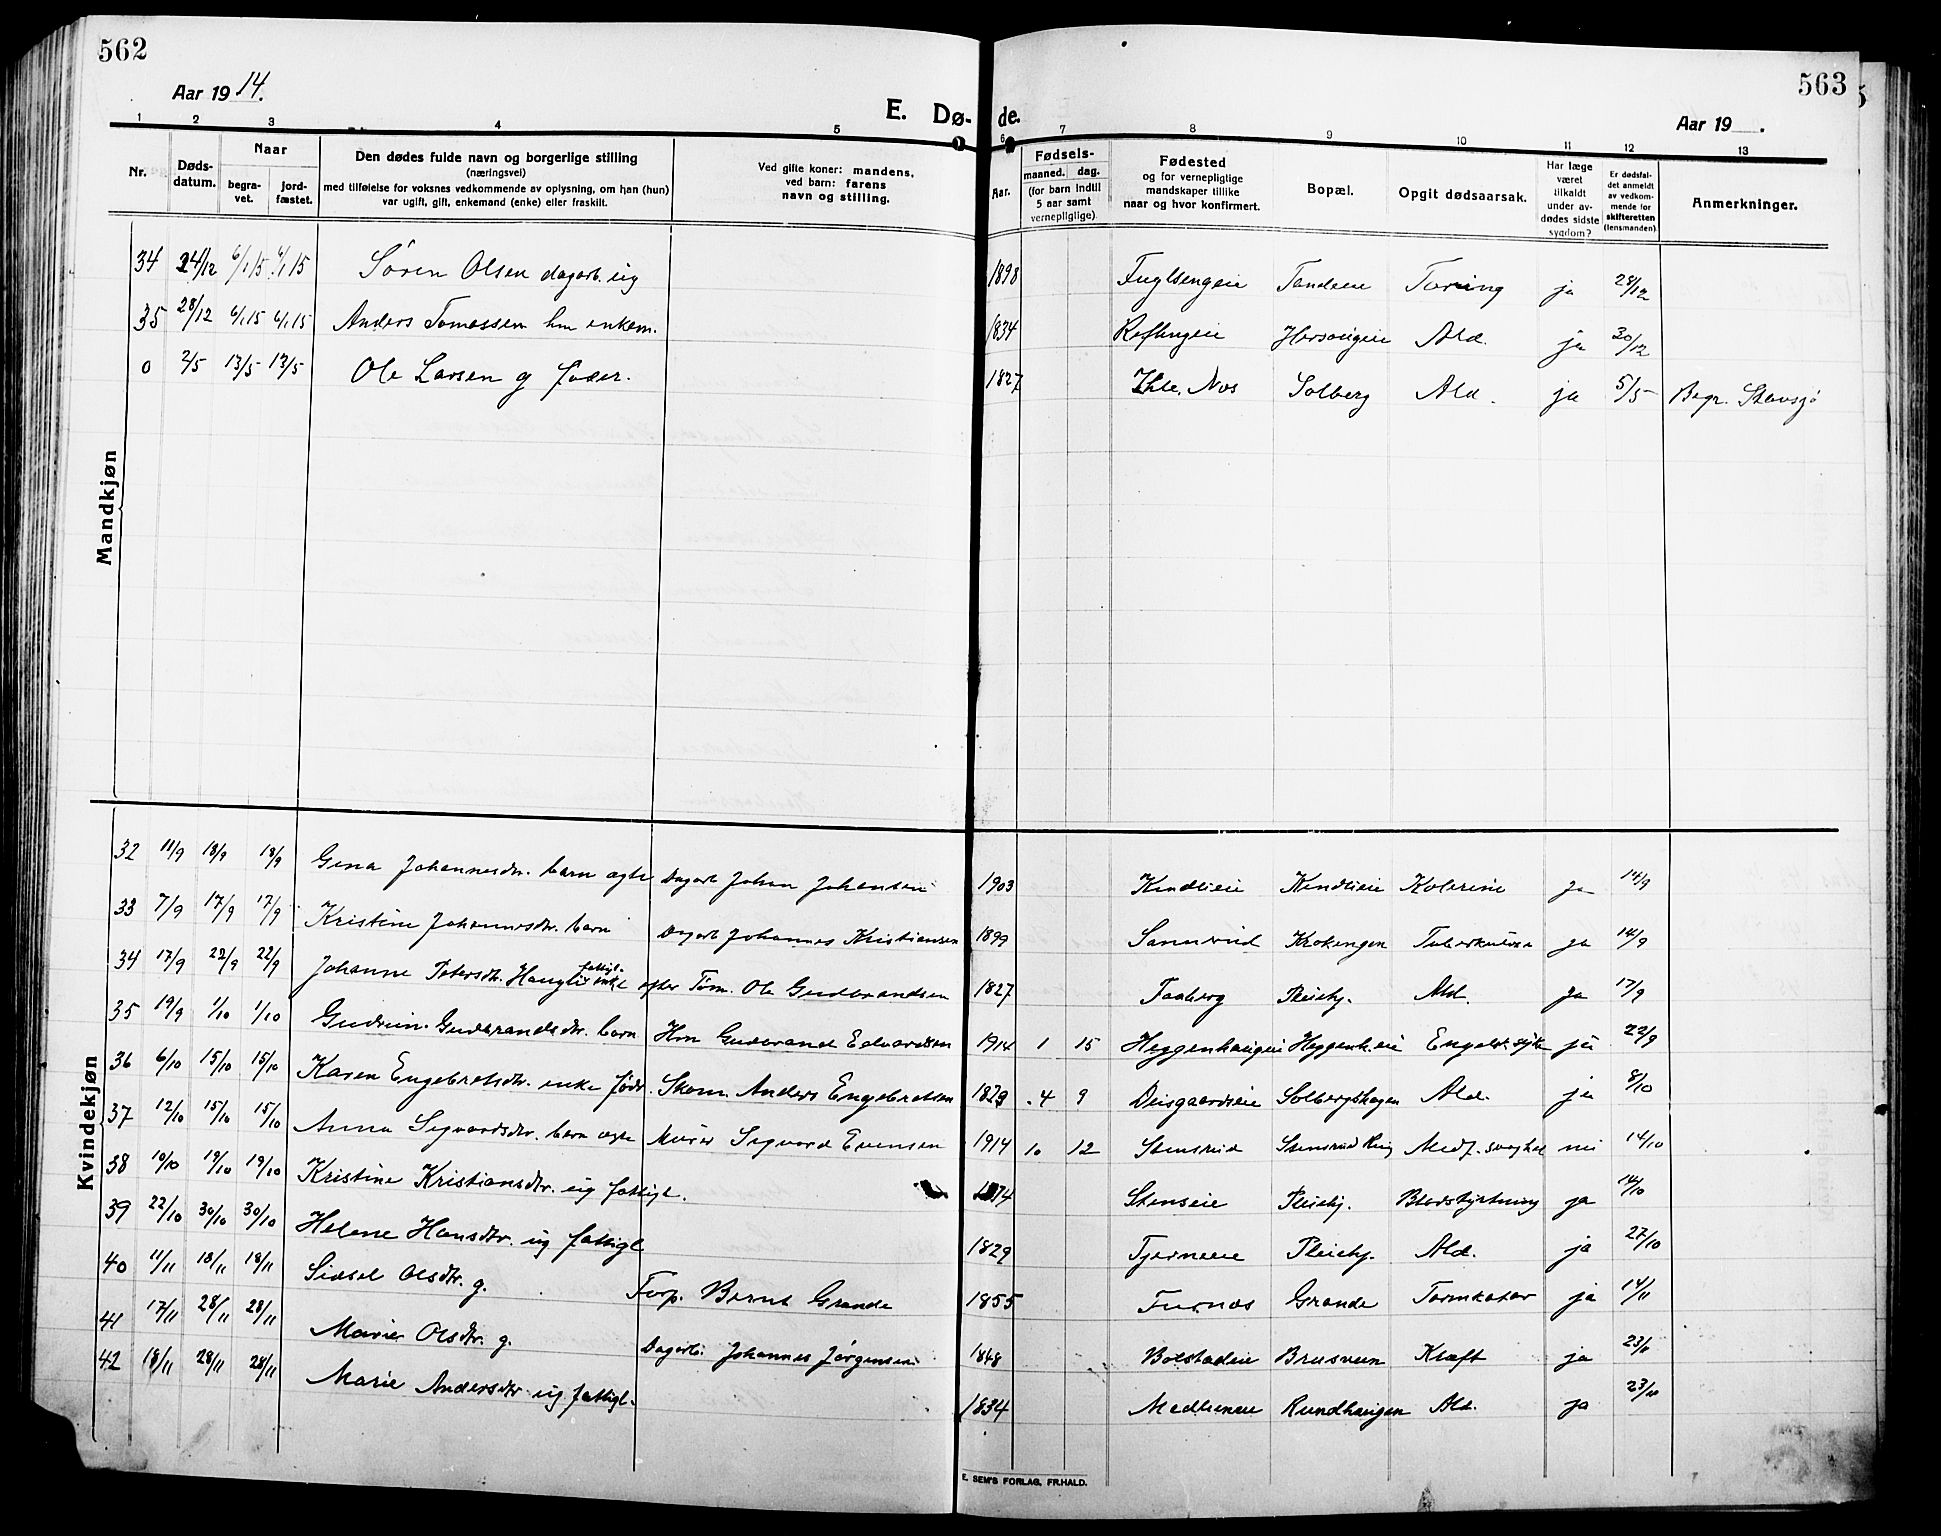 562
563
Aar 1914.
E. Dø-
de.
Aar 19 .
1 2 3 4 5 6 7 8 9 10 11 12 13
Nr.
Døds-
datum.
Naar
begra-
vet.
jord-
fæstet.
Den dødes fulde navn og borgerlige stilling
(næringsvei)
med tilføielse for voksnes vedkommende av oplysning, om han (hun)
var ugift, gift, enkemand (enke) eller fraskilt.
Ved gifte koner: mandens,
ved barn: farens
navn og stilling.
Aar.
Fødsels-
maaned. dag.
(for barn indtil
5 aar samt
vernepligtige)
Fødested
og for vernepligtige
mandskaper tillike
naar og hvor konfirmert.
Bopæl.
Opgit dødsaarsak.
Har læge
været
tilkaldt
under av-
dødes sidste
sygdom?
Er dødsfal-
det anmeldt
av vedkom-
mende for
skifteretten
(lensmanden)
Anmerkninger.
Mandkjøn
34 24/12 6/1 15 6/1 15 Søren Olsen dagarb. ug 1898 Tandseie Tæring ja 28/12
35 28/12 6/1 15 6/1 15 Anders Tomassen hm enkem. 1834 Ald. ja 30/12
0 2/5 13/5 13/5 Ole Larsen g föder. 1827 Ihle, Nes Solberg Ald. ja 5/5 Begr. Stavsjø
Kvindekjøn
32 11/9 18/9 18/9 Gina Johannesdtr. barn ægte Dagarb Johan Johansen 1903 Kindlieie Kindlieie Kolerine ja 14/9
33 7/9 17/9 17/9 Kristine Johannesdtr. barn Dagarb Johannes Kristiansen 1899 Sannerud Krokengen Tuberkulose ja 14/9
34 17/9 22/9 22/9 Johanne Petersdtr. Haugli fattigl. enke efter Tøm. Ole Gudbrandsen 1827 Faaberg Pleiehj. Ald. ja 17/9
35 19/9 1/10 1/10 Gudrun Gudbrandsdtr. barn Hm Gudbrand Edvardsen 1914 1 15 Heggenhaugeie Heggenh.eie Engelsk syke ja 22/9
36 6/10 15/10 15/10 Karen Engebretsdtr. enke födr. Skom. Anders Engebretsen 1829 4 9 Deisgaardseie Solbergshagen Ald. ja 8/10
37 12/10 15/10 15/10 Anna Sigvardsdtr. barn ægte Murer Sigvard Evensen 1914 10 12 Stensrud Stensrud Ring Medf. svaghet nei 14/10
38 10/10 19/10 19/10 Kristine Kristiansdtr. ug fattigl. Stenseie Pleiehj. Blodstyrtning ja 14/10
39 22/10 30/10 30/10 Helene Hansdtr. ug fattigl 1829 Tjerneeie Pleiehj. Ald. ja 27/10
40 11/11 18/11 18/11 Sidsel Olsdtr. g. Forp. Bernt Grande 1855 Furnes Grande Tarmkatar ja 14/11
41 17/11 28/11 28/11 Marie Olsdtr. g. Dagarb. Johannes Jørgensen 1848 Bolstadeie Brusveen Kræft ja 23/11
42 18/11 28/11 28/11 Marie Andersdtr ug fattigl. 1834 Rundhaugen Ald. ja 23/11
E. SEM'S FORLAG, FR.HALD.